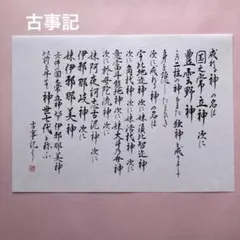 古事記
成れる神の名は
国之常立神 次に
豊雲野神
この二柱の神もまた独神と成りまして
身を隠したまひき
次に成れる神の名は
宇比地邇神 次に妹須比智邇神
次に角杙神 次に妹活杙神
次に意富斗能地神 次に妹大斗乃弁神
次に於母陀流神 次に
妹阿夜訶志古泥神 次に
伊邪那岐神 次に
妹伊邪那美神
上の件の国之常立神より伊邪那美神
以前を并せて神世七代と称ふ
古事記より